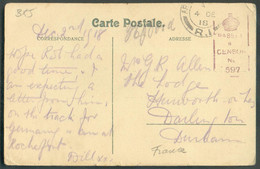 315
Carte Postale.
CORRESPONDANCE
ADRESSE
Dec 2nd 1918
4 DE
18
Hope R.S.H. had a
good time. I
am expecting a
letter from him,
on the track for
Germany. am at
Rochefort.
Bill
CENSOR
No
597
Mrs G R Allen
The Lodge
Hurworth on Tees
Darlington
Durham
France